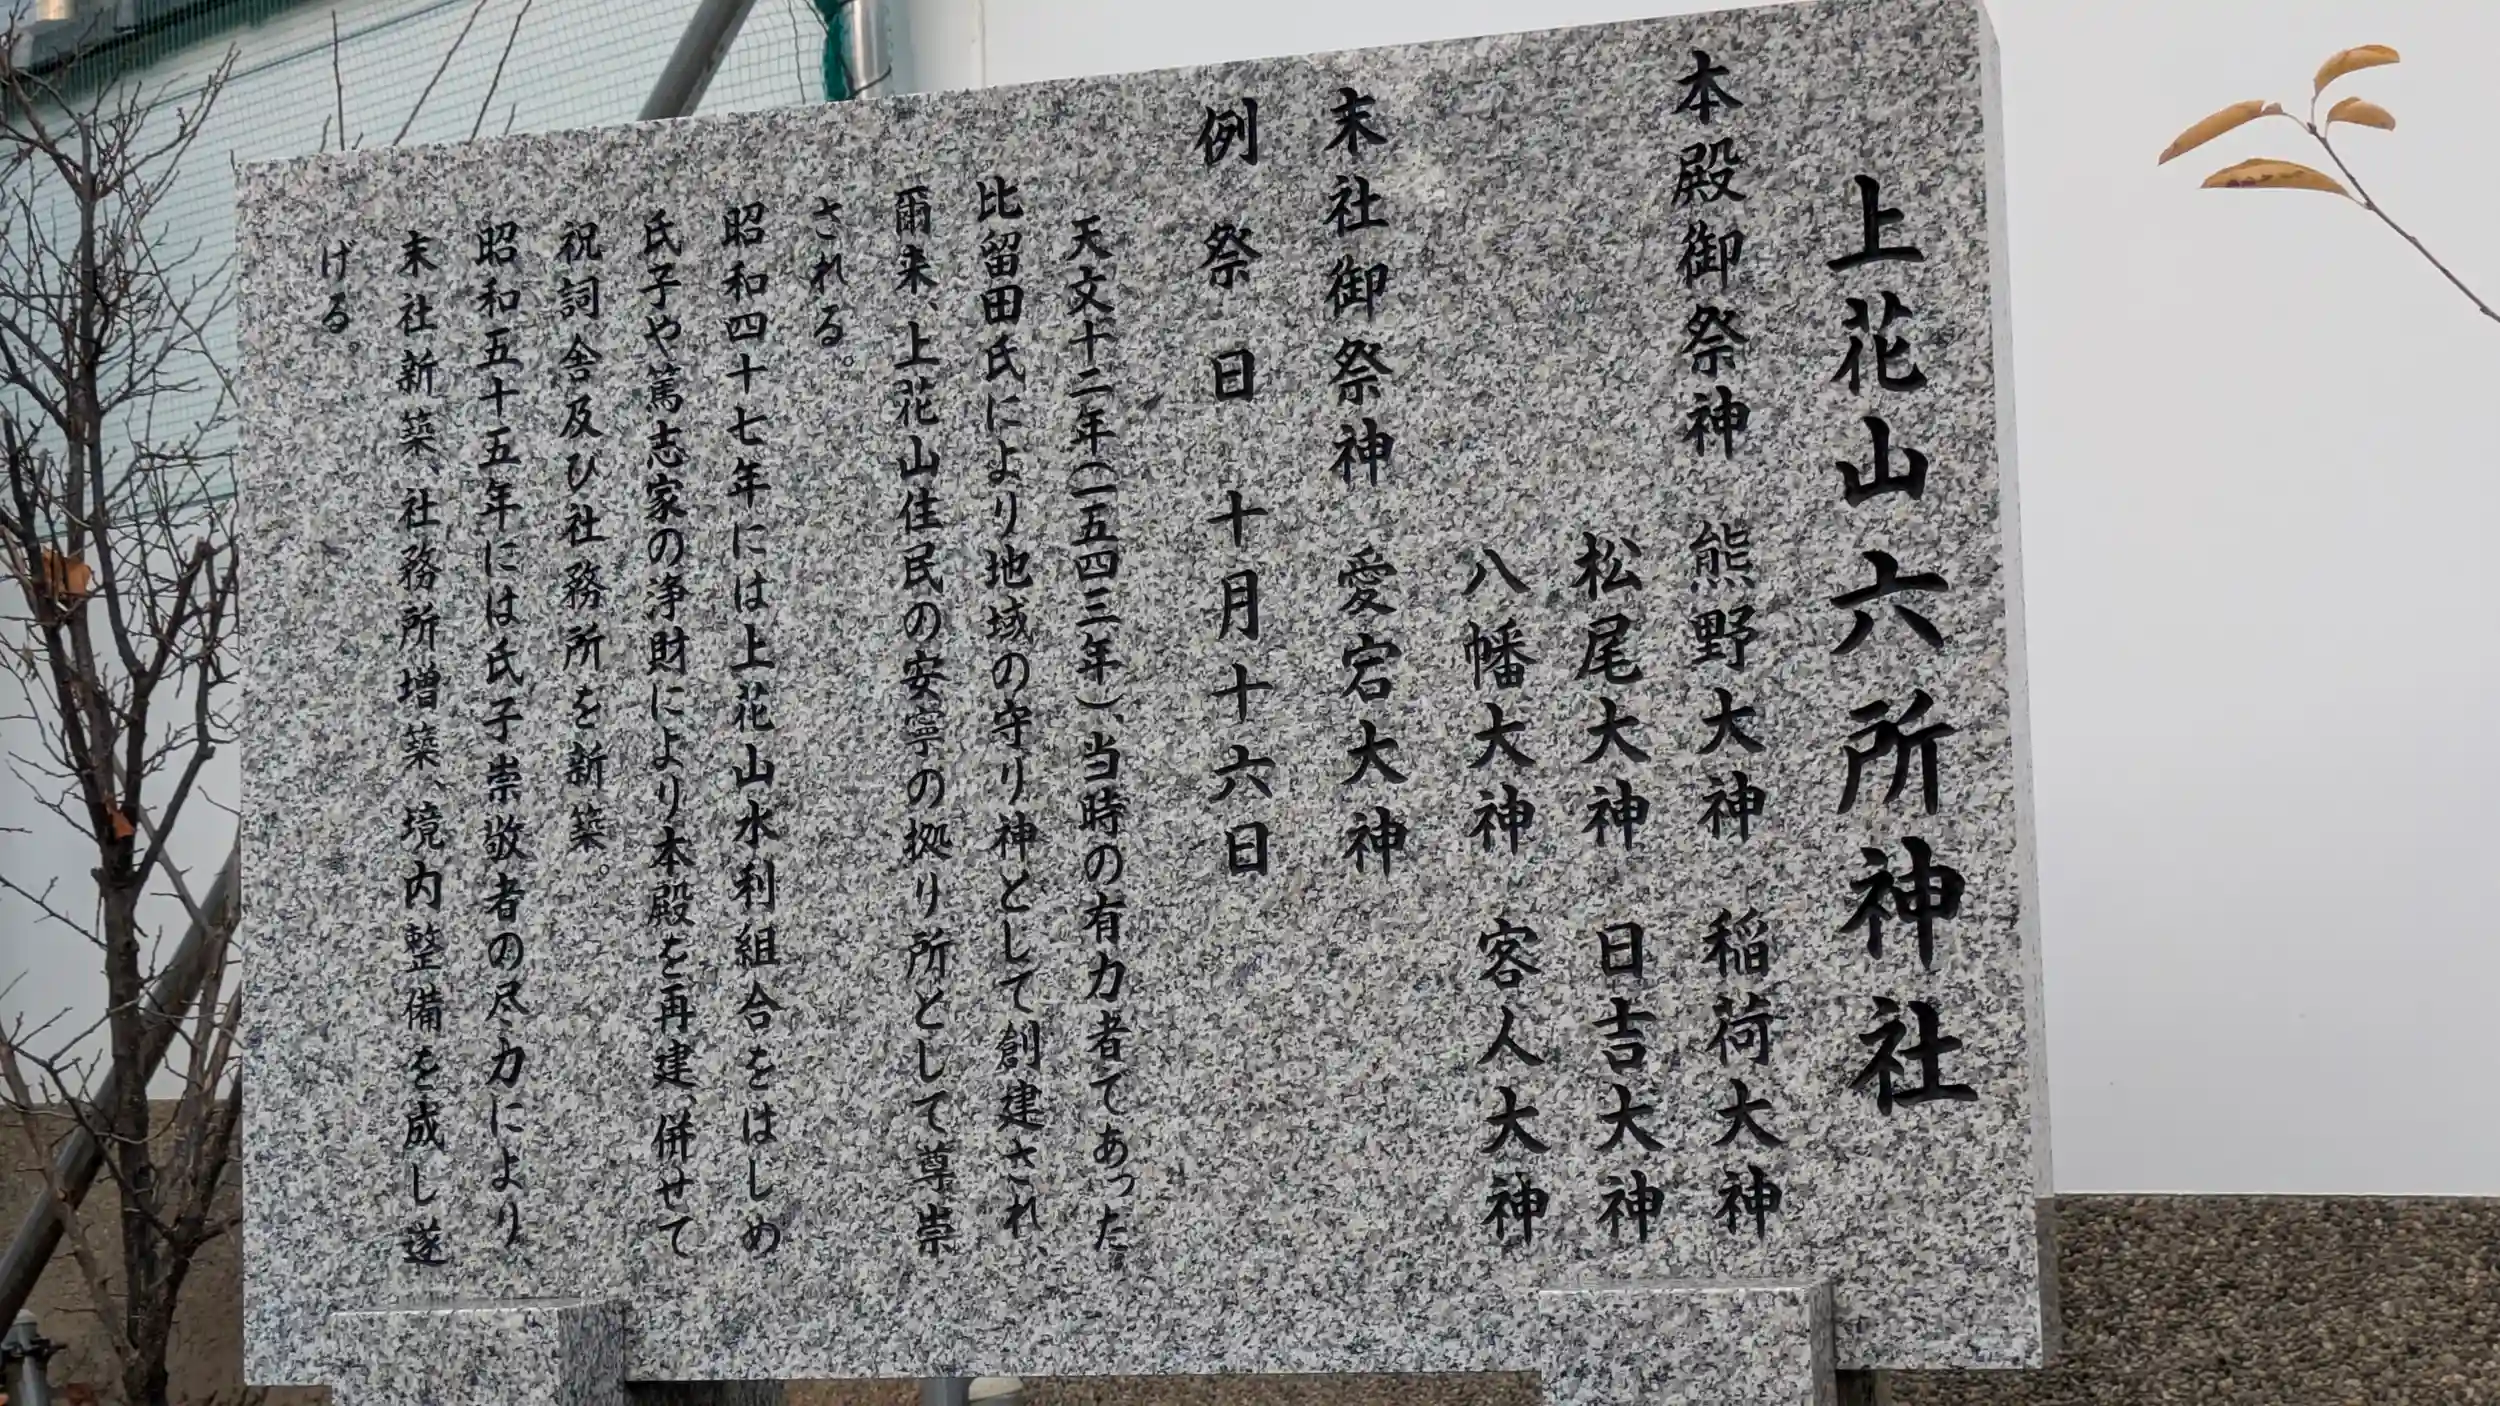 上花山六所神社
本殿御祭神 熊野大神 稲荷大神
松尾大神 日吉大神
八幡大神 客人大神
末社御祭神 愛宕大神
例祭日 十月十六日
天文十二年(一五四三年)、当時の有力者てあった。
比留田氏により地域の守り神として創建され、
爾来、上花山住民の安寧の拠り所として尊崇
される。
昭和四十七年には上花山水利組合をはじめ
氏子や篤志家の浄財により本殿を再建、併せて
祝詞舎及ひ社務所を新築。
昭和五十五年には氏子崇敬者の尽力により、
末社新築、社務所増築、境内整備を成し遂
げる。